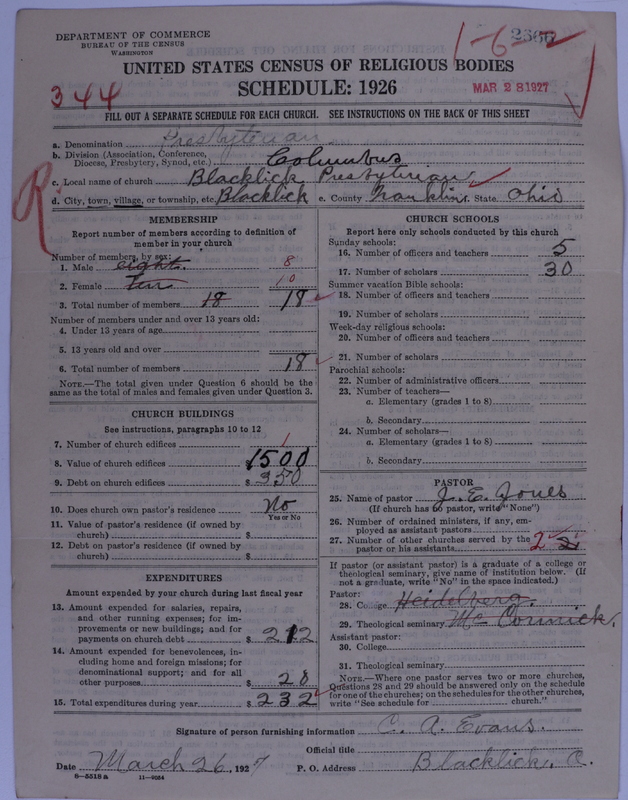 DEPARTMENT OF COMMERCE
BUREAU OF THE CENSUS
WASHINGTON
1-6-2
UNITED STATES CENSUS OF RELIGIOUS BODIES
SCHEDULE: 1926
344
MAR 28 1927
FILL OUT A SEPARATE SCHEDULE FOR EACH CHURCH. SEE INSTRUCTIONS ON THE BACK OF THIS SHEET
a. Denomination Presbyterian
b. Division (Association, Conference, Diocese, Presbytery, Synod, etc.) Columbus
c. Local name of church Blacklick Presbyterian
d. City, town, village, or township, etc. Blacklick e. County Franklin f. State Ohio
R
MEMBERSHIP
Report number of members according to definition of
member in your church
Number of members, by sex:
1. Male eight 8
2. Female Ten 10
3. Total number of members 18 18
Number of members under and over 13 years old:
4. Under 13 years of age
5. 13 years old and over
6. Total number of members 18
NOTE.—The total given under Question 6 should be the
same as the total of males and females given under Question 3.
CHURCH BUILDINGS
See instructions, paragraphs 10 to 12
7. Number of church edifices 1
8. Value of church edifices 1500
9. Debt on church edifices $ 350
10. Does church own pastor's residence No
Yes or No
11. Value of pastor's residence (if owned by
church) $
12. Debt on pastor's residence (if owned by
church) $
EXPENDITURES
Amount expended by your church during last fiscal year
13. Amount expended for salaries, repairs,
and other running expenses; for im-
provements or new buildings; and for
payments on church debt $ 212
14. Amount expended for benevolences, in-
cluding home and foreign missions; for
denominational support; and for all
other purposes $ 28
15. Total expenditures during year $ 232
CHURCH SCHOOLS
Report here only schools conducted by this church
Sunday schools:
16. Number of officers and teachers 5
17. Number of scholars 30
Summer vacation Bible schools:
18. Number of officers and teachers
19. Number of scholars
Week-day religious schools:
20. Number of officers and teachers
21. Number of scholars
Parochial schools:
22. Number of administrative officers
23. Number of teachers—
a. Elementary (grades 1 to 8)
b. Secondary
24. Number of scholars—
a. Elementary (grades 1 to 8)
b. Secondary
PASTOR
25. Name of pastor J. E. Jones
(If church has no pastor, write "None")
26. Number of ordained ministers, if any, em-
ployed as assistant pastors
27. Number of other churches served by the
pastor or his assistants 2
If pastor (or assistant pastor) is a graduate of a college or
theological seminary, give name of institution below. (If
not a graduate, write "No" in the space indicated.)
Pastor:
28. College Heidelberg
29. Theological seminary McCormick
Assistant pastor:
30. College
31. Theological seminary
NOTE.—Where one pastor serves two or more churches,
Questions 28 and 29 should be answered only on the schedule
for one of the churches; on the schedules for the other churches,
write "See schedule for church."
Signature of person furnishing information C. A. Evans.
Official title
Date March 26, 1927 P. O. Address Blacklick, O.
8—5518 a 11—9264